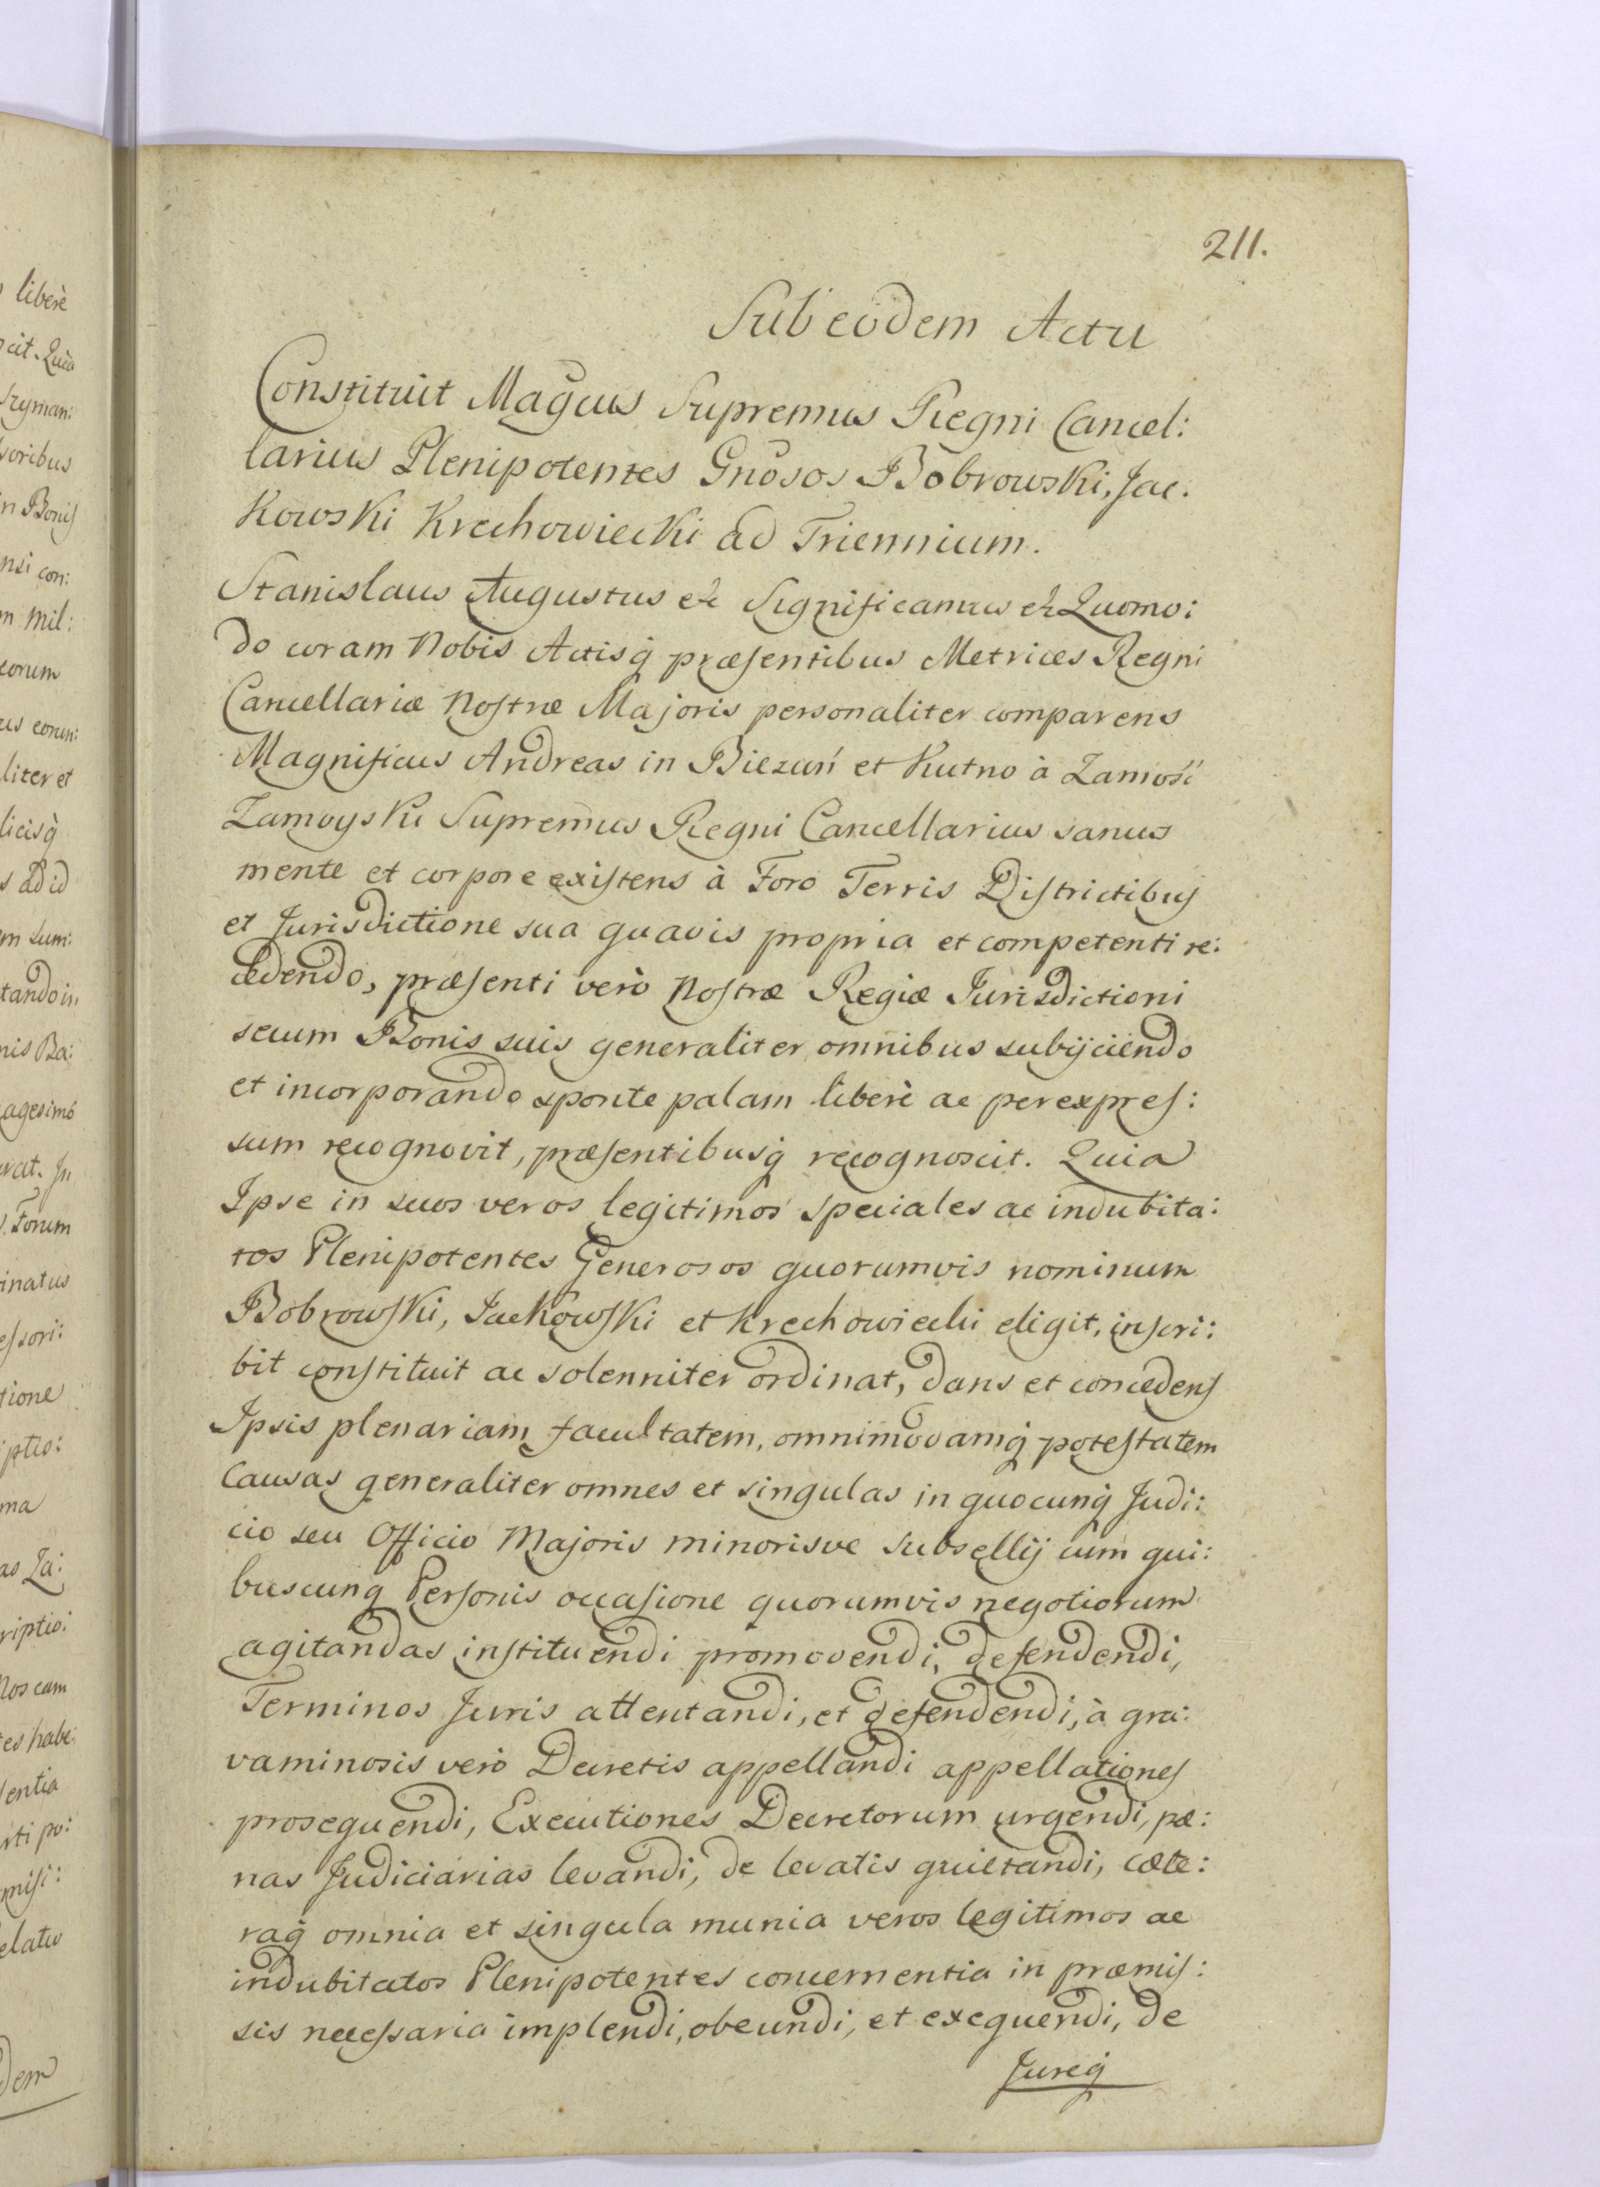 211.
Sub eodem Actu
Constituit Magcus Supremus Regni Cancel:
larius Plenipotentes Gnosos Bobrowski, Jac.
Kowski Krechowiecki ad Triennium.
Stanislaus Augustus etc Significamus etc Quomo:
do coram Nobis Actisq́ præsentibus Metrices Regni
Cancellariæ Nostræ Majoris personaliter comparens
Magnificus Andreas in Biezuń et Kutno à Zamość
Zamoyski Supremus Regni Cancellarius sanus
mente et corpore existens à Foro Terris Districtibus
et Jurisdictione sua quavis propria et competenti re:
cedendo, præsenti verò Nostræ Regiæ Jurisdictioni
secum Bonis suis generaliter omnibus subijciendo
et incorporando sponte palam liberè ac per expres:
sum recognovit, præsentibusq́ recognoscit. Quia
Ipse in suos veros legitimos speciales ac indubita:
tos Plenipotentes Generosos quorumvis nominum
Bobrowski, Jackowski et Krechowiecki eligit, inscri:
bit constituit ac solenniter ordinat, dans et concedens
Ipsis plenariam facultatem, omnimodamq́ potestatem
Causas generaliter omnes et singulas in quocunq́ Judi:
cio seu Officio Majoris minorisve Subsellij cum qui:
buscunq Personis occasione quorumvis negotiorum
agitandas instituendi promovendi, defendendi,
Terminos Juris attentandi, et defendendi, à gra:
vaminosis verò Decretis appellandi appellationes
prosequendi, Executiones Decretorum urgendi, pæ:
nas Judiciarias levandi, de levatis quietandi, cæte:
raq́ omnia et singula munia veros legitimos ac
indubitatos Plenipotentes concernentia in præmis:
sis necessaria implendi, obeundi, et exequendi, de
Jureq́